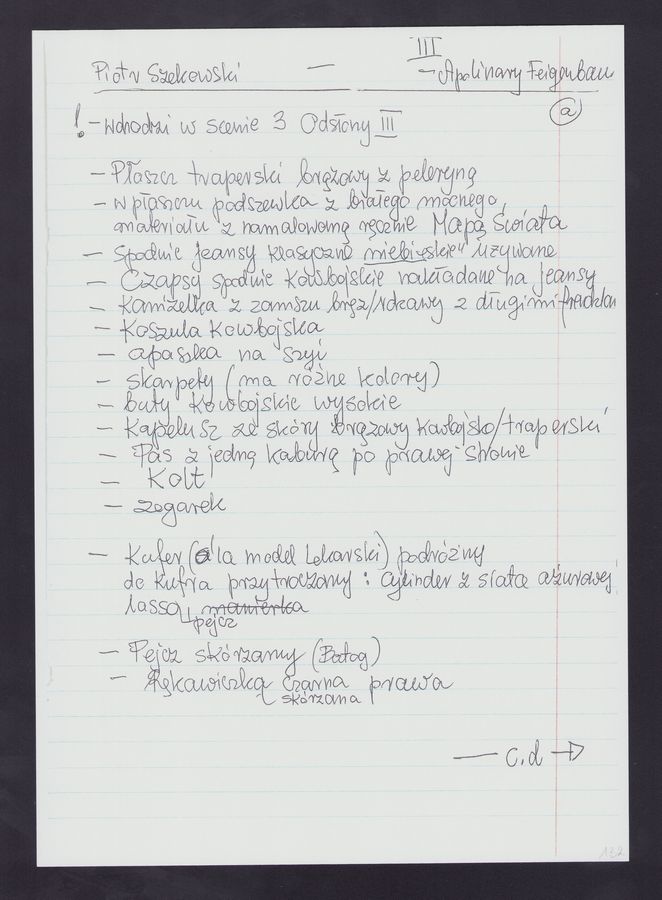 III
Piotr Szekowski — – Apolinary Feigenbau
a
! – Wchodzi w scenie 3 Odsłony III
– Płaszcz traperski brązowy z peleryną
– w płaszczu podszewka z białego mocnego,
materiału z namalowaną ręcznie Mapą Świata
– Spodnie jeansy klasyczne niebieskie" używane
– Czapsy spodnie kowbojskie nakładane na jeansy
– Kamizelka z zamszu brąz/rdzawy z długimi
– Koszula kowbojska
– apaszka na szyi
– skarpety (ma różne kolory)
– buty kowbojskie wysokie
– Kapelusz ze skóry brązowy kowbojsko/traperski
– Pas z jedną kaburą po prawej stronie
– Kolt
– zegarek
– Kufer (a'la model lekarski) podróżny
do kufra przytroczony : cylinder z siatą ażurowej
lasso, manierka
pejcz
– Pejcz skórzany (Batog)
– Rękawiczka czarna prawa
skórzana
— c.d →
132